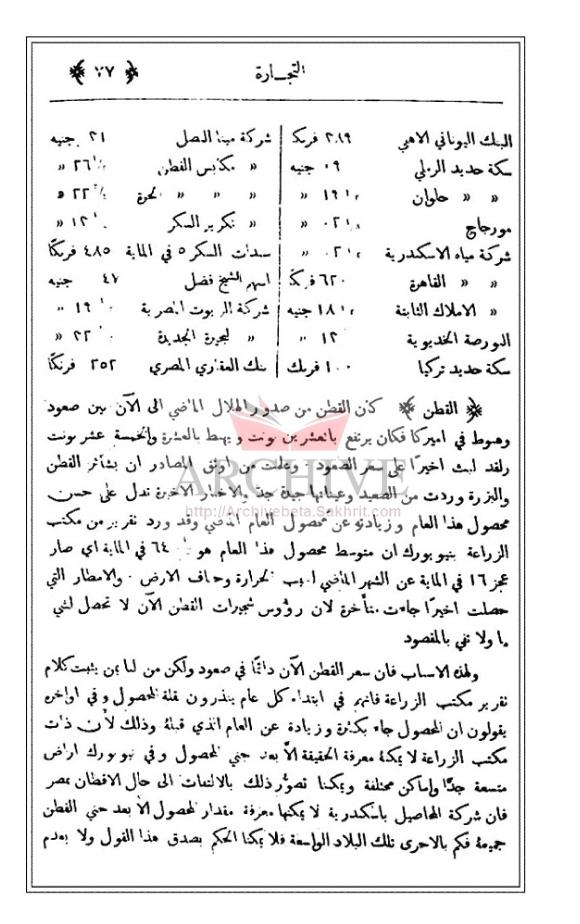 التجـارة
﴿ ٧٧ ﴾
البنك اليوناني الاهلي ٢٨٩ فرنك شركة مينا البصل ٢١ جنيه
سكة حديد الرملي ٠٩ جنيه » مكابس القطن ٢٦ »
» » حلوان ١٩ » » » » الحرة ٢٢ »
مورجاج ٠٢ » » تكرير السكر ١٢ »
شركة مياه الاسكندرية ٠٢ » سندات السكر ٥ في المایة ٤٨٥ فرنكًا
» » القاهرة ٦٢٠ فرنك اسهم الشيخ فضل ٤٧ جنيه
» الاملاك الثابتة ١٨ جنيه شركة البيوت المصرية ١٩ »
البورصة الخديوية ١٢ » » البحيرة الجديدة ٢٢ »
سكة حديد تركيا ١٠٠ فرنك بنك العقاري المصري ٢٥٢ فرنكًا
﴿ القطن ﴾ كان القطن من صدور الهلال الماضي الى الآن بين صعود
وهبوط في اميركا فكان يرتفع بالعشرين بونت ويهبط بالعشرة والخمسة عشر بونت
ولقد لبث اخيرًا على سعر الصعود . وعلمت من اوثق المصادر ان بشائر القطن
والبزرة وردت من الصعيد وعيناتها جيدة جدًا والاخبار الاخيرة تدل على حسن
محصول هذا العام وزيادته عن محصول العام الماضي وقد ورد تقرير من مكتب
الزراعة بنيويورك ان متوسط محصول هذا العام هو ٦٤ في الماية اي صار
عجز ١٦ في الماية عن الشهر الماضي لسبب الحرارة وجفاف الارض . والامطار التي
حصلت اخيرًا جاءت متأخرة لان رؤوس شجيرات القطن الآن لا تحصل لشي
ما ولا تفي بالمقصود
ولهذه الاسباب فان سعر القطن الآن دائمًا في صعود ولكن من لنا بمن يثبت كلام
تقرير مكتب الزراعة فانهم في ابتداء كل عام ينذرون بقلة المحصول وفي اواخره
يقولون ان المحصول جاء بكثرة وزيادة عن العام الذي قبله وذلك لأن ذات
مكتب الزراعة لا يمكنه معرفة الحقيقة الّا بعد جني المحصول وفي نيويورك اراض
متسعة جدًا واماكن مختلفة ويمكننا تصوّر ذلك بالالتفات الى حال الاقطان بمصر
فان شركة المحاصيل باسكندرية لا يمكنها معرفة مقدار المحصول الّا بعد جني القطن
جميعهُ فكم بالاحرى تلك البلاد الواسعة فلا يمكننا الحكم بصدق هذا القول ولا بعدم
ARCHIVE
http://Archivebeta.Sakhrit.com